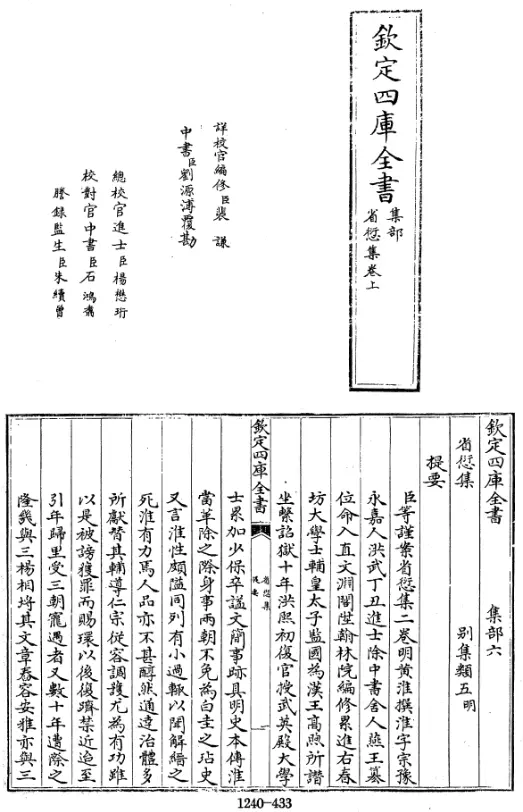 欽定四庫全書
集部
省愆集卷上
詳校官編修臣裴謙
中書臣劉源溥覆勘
總校官進士臣楊懋珩
校對官中書臣石鴻翥
謄錄監生臣朱續曾
欽定四庫全書　集部六
省愆集　別集類五明
提要
臣等謹案省愆集二卷明黃淮撰淮字宗豫
永嘉人洪武丁丑進士除中書舍人燕王篡
位命入直文淵閣陞翰林院編修累進右春
坊大學士輔皇太子監國為漢王高煦所譖
坐繫詔獄十年洪熙初復官授武英殿大學
欽定四庫全書
省愆集
提要
一
士累加少保卒諡文簡事跡具明史本傳淮
當革除之際身事兩朝不免為白圭之玷史
又言淮性頗隘同列有小過輒以聞解縉之
死淮有力焉人品亦不甚醇然通達治體多
所獻替其輔導仁宗從容調護尤為有功雖
以是被謗獲罪而賜環以後復躋禁近迨至
引年歸里受三朝寵遇者又數十年遭際之
隆幾與三楊相埒其文章舂容安雅亦與三
1240-433